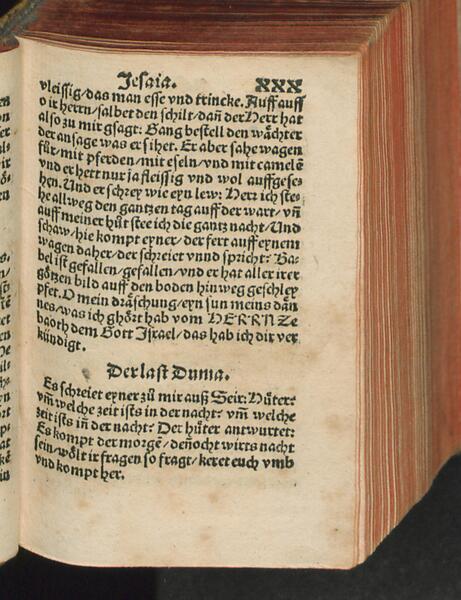 Jesaia. XXX
vleissig/das man esse vnd trincke. Auff auff
o ir herrn/salbet den schilt/dañ der Herr hat
also zu mir gsagt: Gang bestell den wächter
der ansage was er sihet. Er aber sahe wagen
für/mit pferden/mit eseln/vnd mit camelẽ
vnd er hett nur ja fleissig vnd wol auffgese-
hen. Und er schrey wie eyn lew: Herr ich ste-
he allweg den gantzen tag auff der wart/vñ
auff meiner hůt stee ich die gantz nacht/Und
schaw/hie kompt eyner/der fert auff eynem
wagen daher/der schreiet vnnd spricht: Ba-
bel ist gefallen/gefallen/vnd er hat aller irer
götzen bild auff den boden hinweg geschley
pfet. O mein dräschung/eyn sun meins dän
nes/was ich ghört hab vom HERRN Ze
baoth dem Gott Israel/das hab ich dir ver
kündigt.
Der last Duma.
Es schreiet eyner zů mir auß Seir: Hůter:
vm̃ welche zeit ists in der nacht: vm̃ welche
zeit ists in der nacht: Der hůter antwurtet:
Es kompt der morgẽ/deñocht wirts nacht
sein/wölt ir fragen so fragt/keret euch vmb
vnd kompt her.